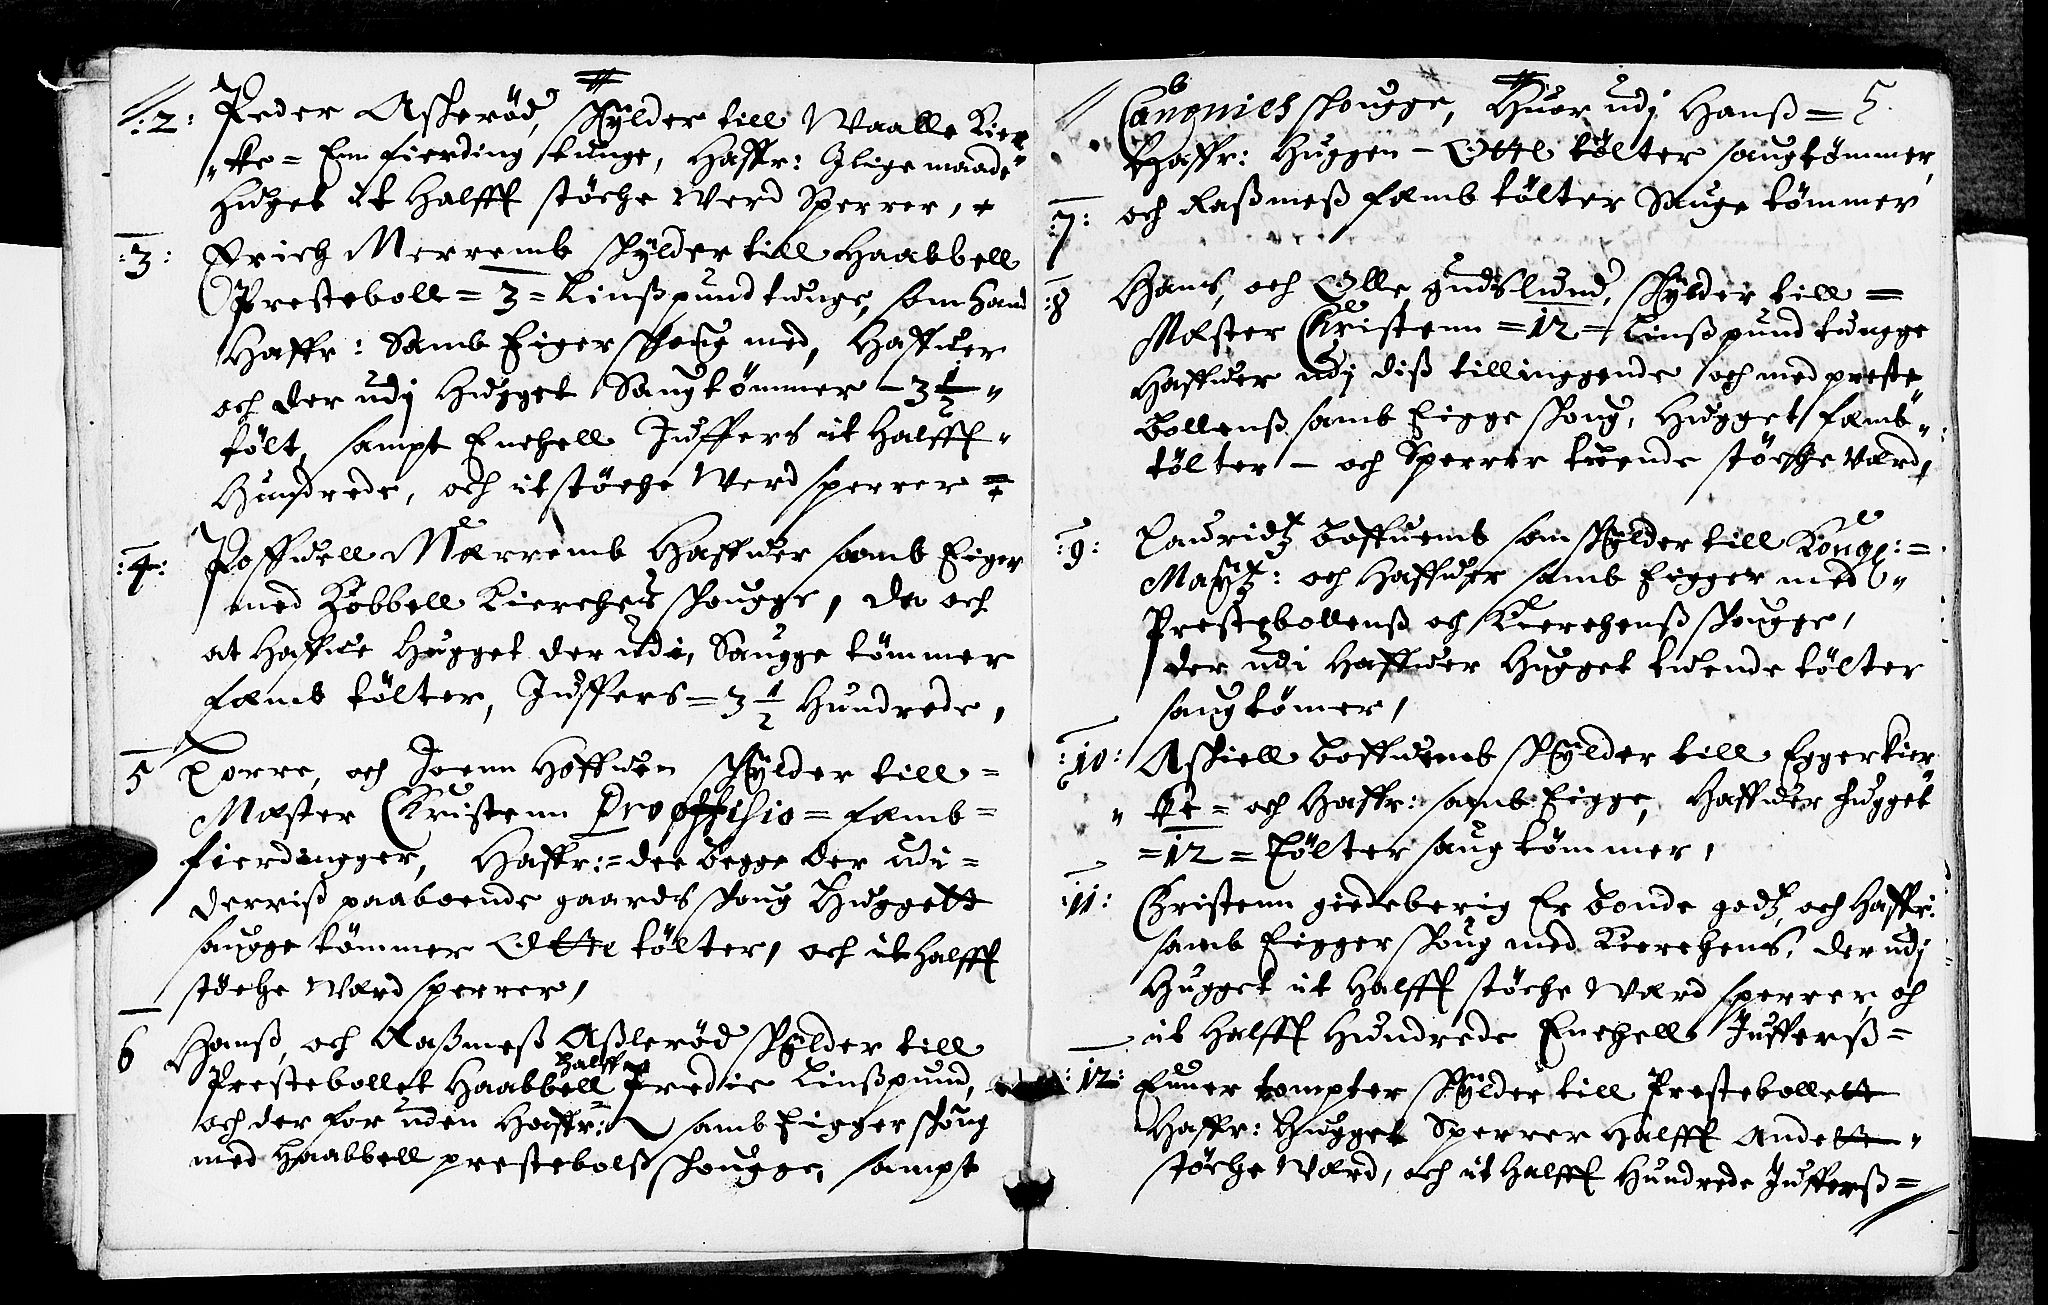 :2: Peder Askeröd, skÿlder till Waalle Kier
"ke = Een fierding tunge, Haffr: Jlige maade"
Huget it Halfft störke Werd Sperrer,
:3: Erich Merremb skÿlder till Haabbell
Presteboll = 3 = Linßpund tunge, som hand
Haffr: Samb Eiger skoug med, Haffuer
och der udj Hugget Saugtömmer – 3 1/2 "
tölt, sampt Enchell Juffers it Halfft "
Hundrede, och it störke Werd sperrer =
:4: Poffuell Mærremb Haffuer samb Eiger
med Hobbell Kierches skougge, da och
at Haffue Hugget der udi, Saugge tömmer
femb tölter, Juffers = 3 1/2 Hundrede,
5 Torre, och Joenn Hoffuen skÿlder till =
Mester Christenn = femb =
fierdingger, Haffr: = dee begge der udi =
derriß paaboende gaards skoug Huggett
saugge tömmer Otte tölter, och it Halfft
störke Værd sperrer,
6 Hanß, och Raßmeß Aßleröd skÿlder till
halff
Prestebollet Haabbell Tredie Linßpund,
och der for uden Haffr: samb Eigger skoug
med Haabbell prestebolß skougge, sampt
5.
Canonics skougge, Huer udj Hanß =
Haffr: Huggen – Otte tölter saugtömmer,
:7: och Raßmeß femb tölter Sauge tömmer
:8 Hans, och Olle gudslund, skÿlder till =
Mester Christenn = 12 = Linßpund tungge
Haffuer udj diß tilliggende och med preste
bollenß samb Eigge skoug, Hugget femb "
tölter – och Sperrer tuende störke værd,
:9: Lauridtz boffuemb som skÿlder till Kongl: =
Maÿtz: och Haffuer samb Eigger med "
Prestebollenß och Kierchenß skougge,
der udi Haffuer Hugget tuende tölter
saugtömer,
:10: Askiell boffuemb skÿlder till Eggerkier
" ke = och Haffr: samb Eigge, Haffuer hugget
= 12 = Tölter saugtömmer,
:11: Christenn giedeberig Er bonde godtz, och Haffr:
samb Eigger skoug med Kierchens, der udj
Hugget it Halfft störke Værd sperrer, och
it Halfft Hundrede Enchell Jufferß =
:12: Euuer tompter skÿlder till Prestebollett
Haffr: Hugget Sperrer Halfft Andett "
störke Værd, och it Halfft Hundrede Jufferß =